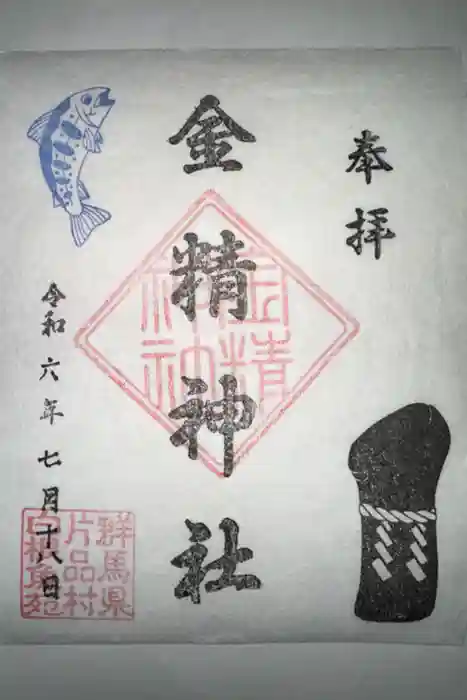 奉拝
金精神社
令和六年七月十八日
金精
神社
群馬県
片品村
白根魚苑